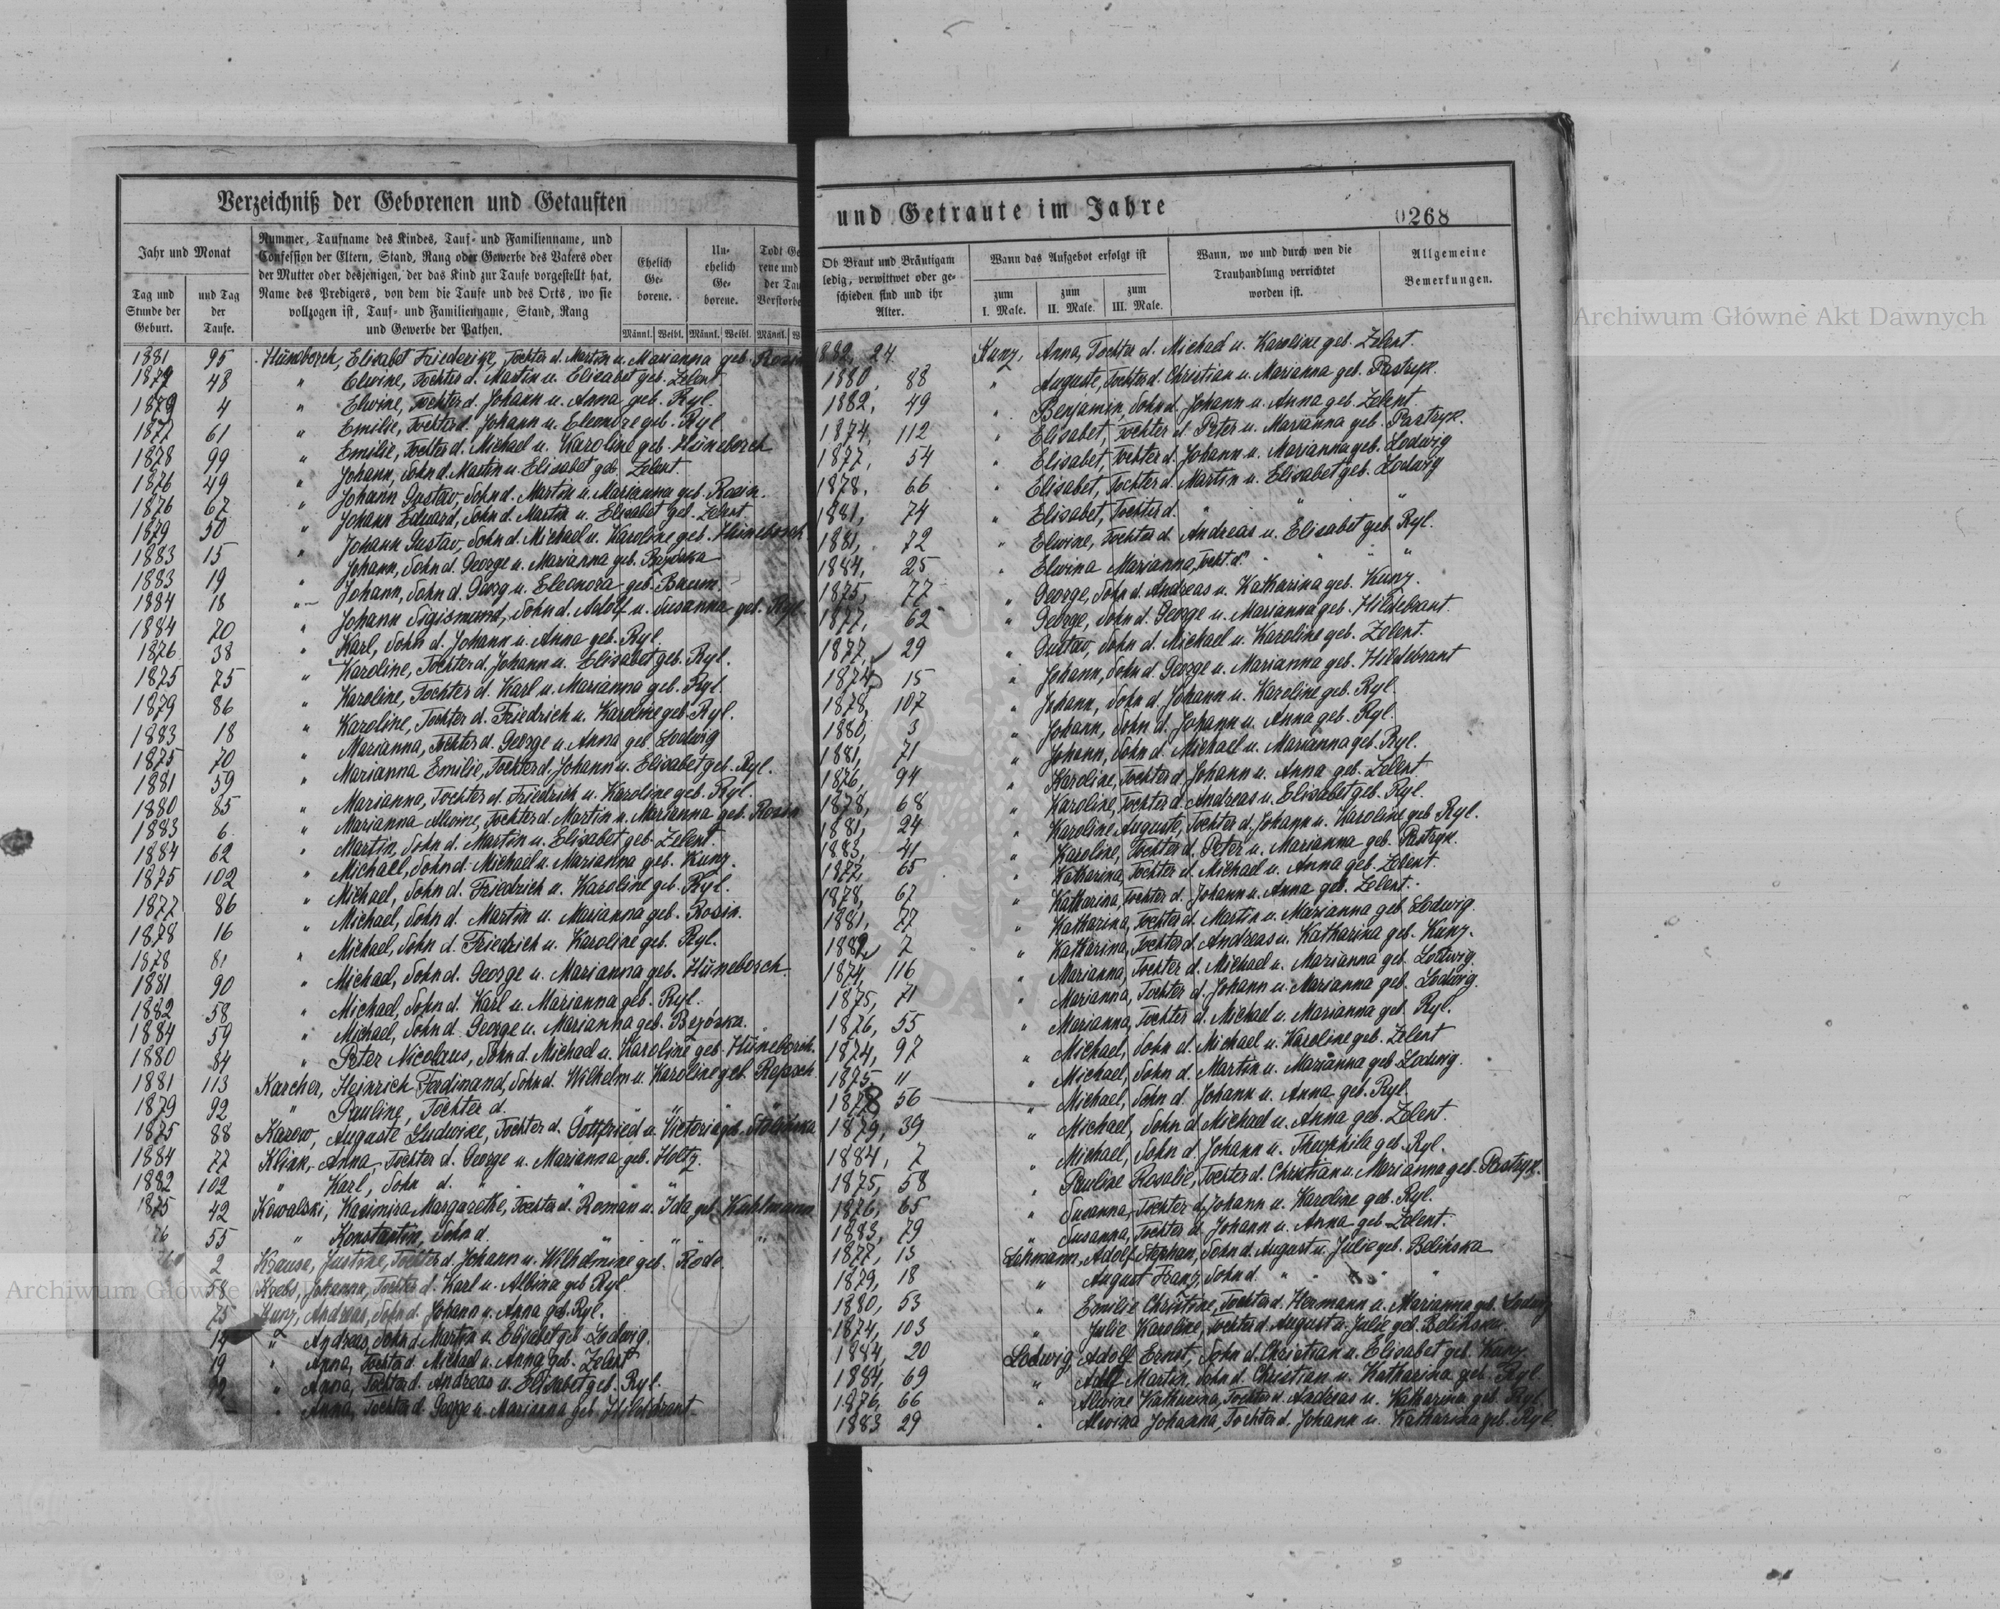 Verzeichniß der Geborenen und Getauften
Jahr und Monat
Tag und
Stunde der
Geburt.
und Tag
der
Taufe.
Nummer, Taufname des Kindes, Tauf- und Familienname, und
Confession der Eltern, Stand, Rang oder Gewerbe des Vaters oder
der Mutter oder desjenigen, der das Kind zur Taufe vorgestellt hat,
Name des Predigers, von dem die Taufe und des Orts, wo sie
vollzogen ist, Tauf- und Familienname, Stand, Rang
und Gewerbe der Pathen.
Ehelich
Ge-
borene.
Un-
ehelich
Ge-
borene.
Todt Ge
rene und
der Tau
Verstorbe
Männl. Weibl. Männl. Weibl. Männl. W
1881 95 Hüneborch, Elisabet Friederike, Tochter d. Martin u. Marianna geb. Rosin
1879 48 " Elwine, Tochter d. Martin u. Elisabet geb. Zelent
1879 4 " Elwine, Tochter d. Johann u. Anna geb. Ryl.
1877 61 " Emilie, Tochter d. Johann u. Eleonore geb. Ryl
1878 99 " Emilie, Tochter d. Michael u. Karoline geb. Hüneborch
1876 49 " Johann, Sohn d. Martin u. Elisabet geb. Zelent
1876 67 " Johann Gustav, Sohn d. Martin u. Marianna geb. Rosin.
1879 50 " Johann Eduard, Sohn d. Martin u. Elisabet geb. Zelent.
1883 15 " Johann Gustav, Sohn d. Michael u. Karoline geb. Hüneborch
1883 19 " Johann, Sohn d. George u. Marianna geb.
1884 18 " Johann, Sohn d. Georg u. Eleonora geb.
1884 70 " Johann Sigismund, Sohn d. Adolf u. Susanna geb. Ryl
1876 38 " Karl, Sohn d. Johann u. Anna geb. Ryl.
1875 75 " Karoline, Tochter d. Johann u. Elisabet geb. Ryl.
1879 86 " Karoline, Tochter d. Karl u. Marianna geb. Ryl.
1883 18 " Karoline, Tochter d. Friedrich u. Karoline geb. Ryl.
1875 70 " Marianna, Tochter d. George u. Anna geb. Lodwig
1881 59 " Marianna Emilie, Tochter d. Johann u. Elisabet geb. Ryl.
1880 85 " Marianna, Tochter d. Friedrich u. Karoline geb. Ryl.
1883 6 " Marianna Alwine, Tochter d. Martin u. Marianna geb. Rosin
1884 62 " Martin, Sohn d. Martin u. Elisabet geb. Zelent.
1875 102 " Michael, Sohn d. Michael u. Marianna geb. Kunz.
1877 86 " Michael, Sohn d. Friedrich u. Karoline geb. Ryl.
1878 16 " Michael, Sohn d. Martin u. Marianna geb. Rosin.
1878 81 " Michael, Sohn d. Friedrich u. Karoline geb. Ryl.
1881 90 " Michael, Sohn d. George u. Marianna geb. Hüneborch.
1882 58 " Michael, Sohn d. Karl u. Marianna geb. Ryl.
1884 59 " Michael, Sohn d. George u. Marianna geb.
1880 34 " Peter Nicolaus, Sohn d. Michael u. Karoline geb. Hüneborch.
1881 113 Karcher, Heinrich Ferdinand, Sohn d. Wilhelm u. Karoline geb.
1879 92 " Pauline, Tochter d. " " "
1875 88 Karow, Auguste Ludwike, Tochter d. Gottfried u. Victoria geb.
1884 77 Kliak, Anna, Tochter d. George u. Marianna geb. Holtz.
1882 102 " Karl, Sohn d. " " "
1875 42 Kowalski, Kasimira Margarethe, Tochter d. Roman u. Ida geb.
76 55 " Konstantin, Sohn d. " " "
2 Krause, Justine, Tochter d. Johann u. Wilhelmine geb. Rode.
58 Krebs, Johanna, Tochter d. Karl u. Albina geb. Ryl.
75 Kunz, Andreas, Sohn d. Johann u. Anna geb. Ryl.
14 " Andreas, Sohn d. Martin u. Elisabet geb. Lodwig.
19 " Anna, Tochter d. Michael u. Anna geb. Zelent
12 " Anna, Tochter d. Andreas u. Elisabet geb. Ryl.
" Anna, Tochter d. George u. Marianna geb. Hildebrant.
und Getraute im Jahre
0268
Ob Braut und Bräutigam
ledig, verwittwet oder ge-
schieden sind und ihr
Alter.
Wann das Aufgebot erfolgt ist
zum
I. Male.
zum
II. Male.
zum
III. Male.
Wann, wo und durch wen die
Trauhandlung verrichtet
worden ist.
Allgemeine
Bemerkungen.
882, 24 Kunz, Anna, Tochter d. Michael u. Karoline geb. Zelent.
1880, 88 " Auguste, Tochter d. Christian u. Marianna geb. Pastryk.
1882, 49 " Benjamin, Sohn d. Johann u. Anna geb. Zelent
1874, 112 " Elisabet, Tochter d. Peter u. Marianna geb. Pastryk.
1877, 54 " Elisabet, Tochter d. Johann u. Marianna geb. Lodwig
1878, 66 " Elisabet, Tochter d. Martin u. Elisabet geb. Lodwig
1881, 74 " Elisabet, Tochter d. " " "
1881, 72 " Elwine, Tochter d. Andreas u. Elisabet geb. Ryl.
1884, 25 " Elwina Marianna, Tocht. d. " " "
1875, 77 " George, Sohn d. Andreas u. Katharina geb. Kunz.
1877, 62 " George, Sohn d. George u. Marianna geb. Hildebrant.
1877, 29 " Gustav, Sohn d. Michael u. Karoline geb. Zelent.
1875 15 " Johann, Sohn d. George u. Marianna geb. Hildebrant
1878, 107 " Johann, Sohn d. Johann u. Karoline geb. Ryl.
1880, 3 " Johann, Sohn d. Johann u. Anna geb. Ryl.
1881, 71 " Johann, Sohn d. Michael u. Marianna geb. Ryl.
1876, 94 " Karoline, Tochter d. Johann u. Anna geb. Zelent
1878, 68 " Karoline, Tochter d. Andreas u. Elisabet geb. Ryl.
1881, 24 " Karoline Auguste, Tochter d. Johann u. Karoline geb. Ryl.
1883, 41 " Karoline, Tochter d. Peter u. Marianna geb. Pastryk.
1877, 65 " Katharina, Tochter d. Michael u. Anna geb. Zelent.
1878, 67 " Katharina, Tochter d. Johann u. Anna geb. Zelent.
1881, 77 " Katharina, Tochter d. Martin u. Marianna geb. Lodwig.
1882 7 " Katharina, Tochter d. Andreas u. Katharina geb. Kunz.
1874, 116 " Marianna, Tochter d. Michael u. Marianna geb. Lodwig.
1875, 71 " Marianna, Tochter d. Johann u. Marianna geb. Lodwig.
1876, 55 " Marianna, Tochter d. Michael u. Marianna geb. Ryl.
1874, 97 " Michael, Sohn d. Michael u. Karoline geb. Zelent
1875, 11 " Michael, Sohn d. Martin u. Marianna geb. Lodwig.
1878 56 " Michael, Sohn d. Johann u. Anna geb. Ryl.
1879, 39 " Michael, Sohn d. Michael u. Anna geb. Zelent.
1884, 7 " Michael, Sohn d. Johann u. Theophila geb. Ryl.
1875, 58 " Pauline Rosalie, Tochter d. Christian u. Marianna geb. Pastryk.
1876, 65 " Susanna, Tochter d. Johann u. Karoline geb. Ryl.
1883, 79 " Susanna, Tochter d. Johann u. Anna geb. Zelent.
1877, 13 Lehmann, Adolf Stephan, Sohn d. August u. Julie geb. Belinska
1879, 18 " August Franz, Sohn d. " " "
1880, 53 " Emilie Christine, Tochter d. Hermann u. Marianna geb. Lodwig
1874, 103 " Julie Karoline, Tochter d. August u. Julie geb. Belinska.
1884, 20 Lodwig, Adolf Ernst, Sohn d. Christian u. Elisabet geb. Kunz.
1884, 69 " Adolf Martin, Sohn d. Christian u. Katharina geb. Ryl.
1876, 66 " Alwine Katharina, Tochter d. Andreas u. Katharina geb. Ryl.
1883 29 " Alwina Johanna, Tochter d. Johann u. Katharina geb. Ryl.
Archiwum Główne Akt Dawnych
Archiwum Główne